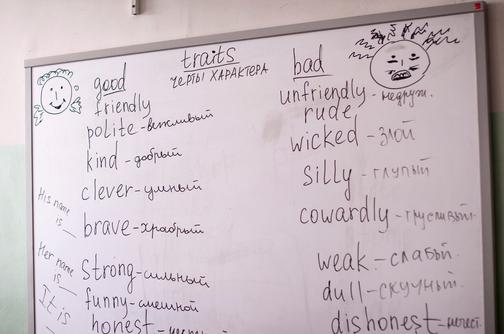 traits
черты ХАРАКТЕРА
good
friendly
polite - вежливый
kind - добрый
clever - умный
brave - храбрый
strong - сильный
funny - смешной
honest -
His name
is
Her name
is
It is
bad
unfriendly - недруж.
rude
wicked - злой
silly - глупый
cowardly - трусливый
weak - слабый.
dull - скучный.
dishonest - нечест